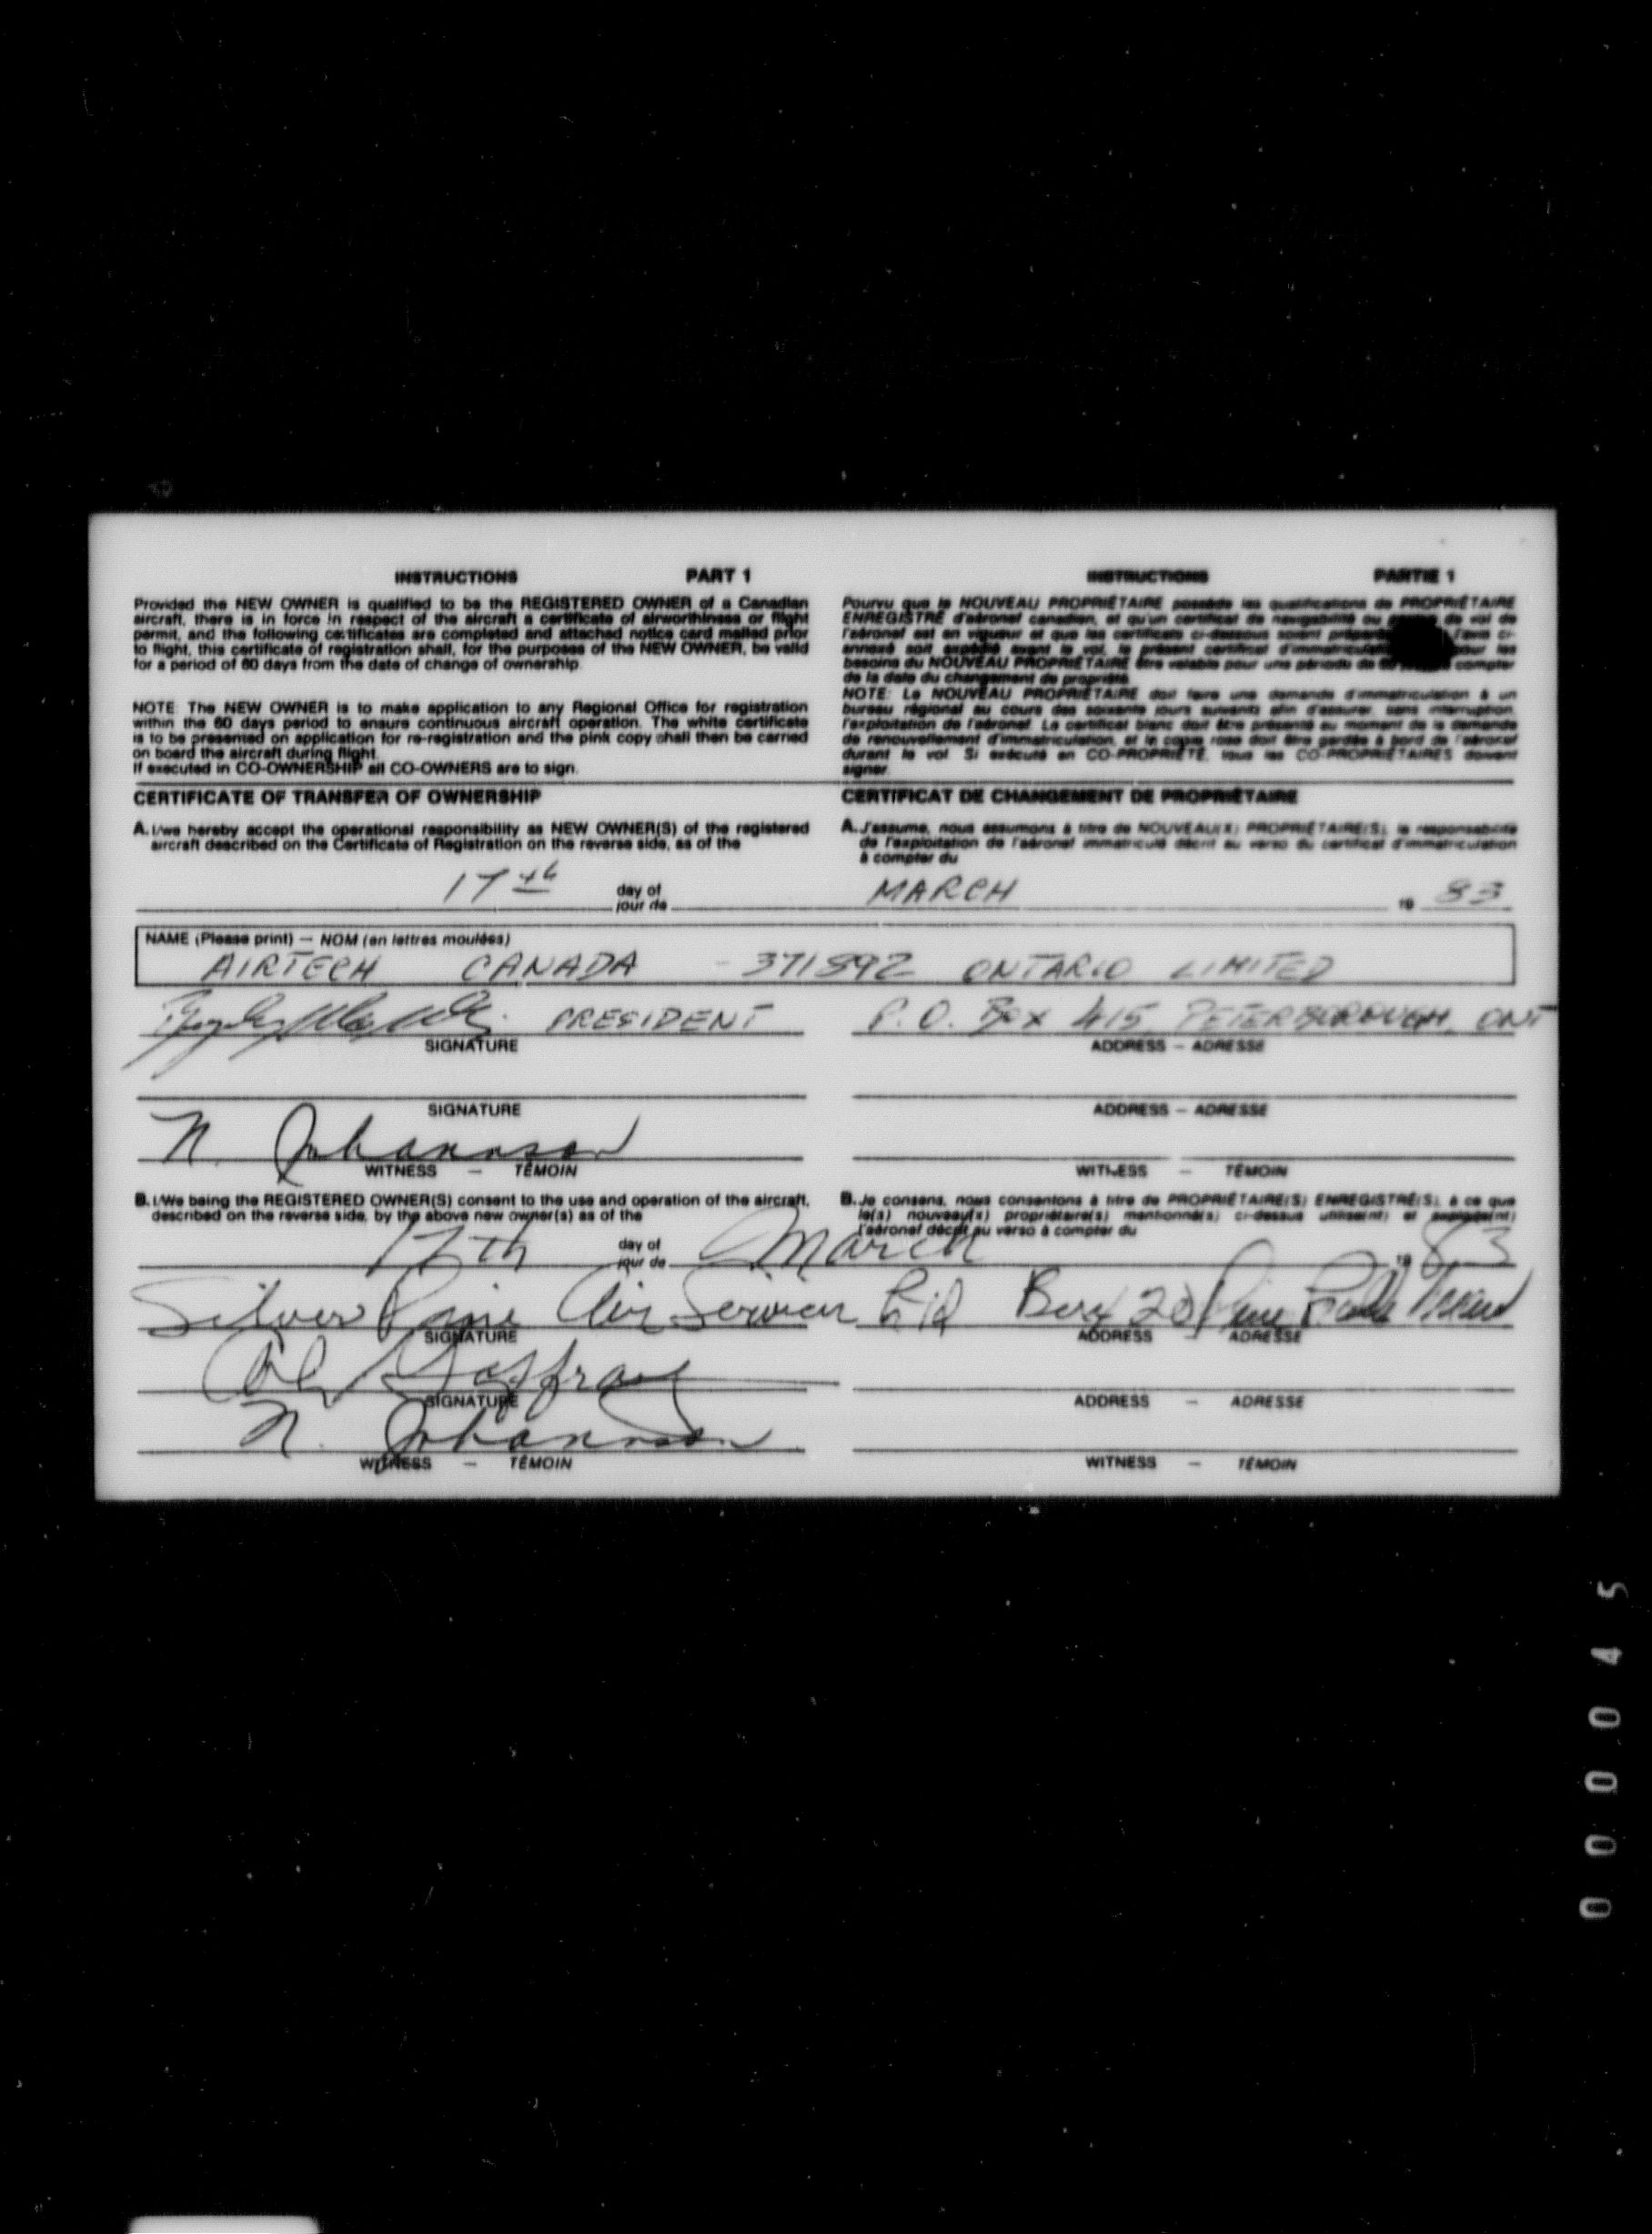 INSTRUCTIONS PART 1
Provided the NEW OWNER is qualified to be the REGISTERED OWNER of a Canadian
aircraft, there is in force in respect of the aircraft a certificate of airworthiness or flight
permit, and the following certificates are completed and attached notice card mailed prior
to flight, this certificate of registration shall, for the purposes of the NEW OWNER, be valid
for a period of 60 days from the date of change of ownership.
NOTE: The NEW OWNER is to make application to any Regional Office for registration
within the 60 days period to ensure continuous aircraft operation. The white certificate
is to be presented on application for re-registration and the pink copy shall then be carried
on board the aircraft during flight.
If executed in CO-OWNERSHIP all CO-OWNERS are to sign.
INSTRUCTIONS PARTIE 1
Pourvu que le NOUVEAU PROPRIÉTAIRE possède les qualifications de PROPRIÉTAIRE
ENREGISTRÉ d'aéronef canadien, et qu'un certificat de navigabilité ou de vol de
l'aéronef est en vigueur et que les certificats ci-dessous soient l'avis ci-
annexé soit expédié avant le vol, le présent certificat d'immatriculation pour les
besoins du NOUVEAU PROPRIÉTAIRE être valable pour une période de 60 compter
de la date du changement de propriété.
NOTE: Le NOUVEAU PROPRIÉTAIRE doit faire une demande d'immatriculation à un
bureau régional au cours des soixante jours suivants afin d'assurer, sans interruption,
l'exploitation de l'aéronef. Le certificat blanc doit être présenté au moment de la demande
de renouvellement d'immatriculation, et la copie rose doit être gardée à bord de l'aéronef
durant le vol. Si exécuté en CO-PROPRIÉTÉ, tous les CO-PROPRIÉTAIRES doivent
signer.
CERTIFICATE OF TRANSFER OF OWNERSHIP
CERTIFICAT DE CHANGEMENT DE PROPRIÉTAIRE
A. I/we hereby accept the operational responsibility as NEW OWNER(S) of the registered
aircraft described on the Certificate of Registration on the reverse side, as of the
A. J'assume, nous assumons à titre de NOUVEAU(X) PROPRIÉTAIRE(S), la responsabilité
de l'exploitation de l'aéronef immatriculé décrit au verso du certificat d'immatriculation
à compter du
17th day of MARCH 19 83
jour de
NAME (Please print) — NOM (en lettres moulées)
AIRTECH CANADA - 371892 ONTARIO LIMITED
PRESIDENT P.O. Box 415, PETERBOROUGH, ONT
SIGNATURE ADDRESS – ADRESSE
SIGNATURE ADDRESS – ADRESSE
N. Johannson
WITNESS – TÉMOIN WITNESS – TÉMOIN
B. I/We being the REGISTERED OWNER(S) consent to the use and operation of the aircraft,
described on the reverse side, by the above new owner(s) as of the
B. Je consens, nous consentons à titre de PROPRIÉTAIRE(S) ENREGISTRÉ(S), à ce que
le(s) nouveau(x) propriétaire(s) mentionné(s) ci-dessus utilise(nt) et exploite(nt)
l'aéronef décrit au verso à compter du
17th day of March 19 83
jour de
Silver Pine Air Services Ltd Box 20 Pine
SIGNATURE ADDRESS ADRESSE
SIGNATURE ADDRESS – ADRESSE
N. Johannson
WITNESS – TÉMOIN WITNESS – TÉMOIN
000045